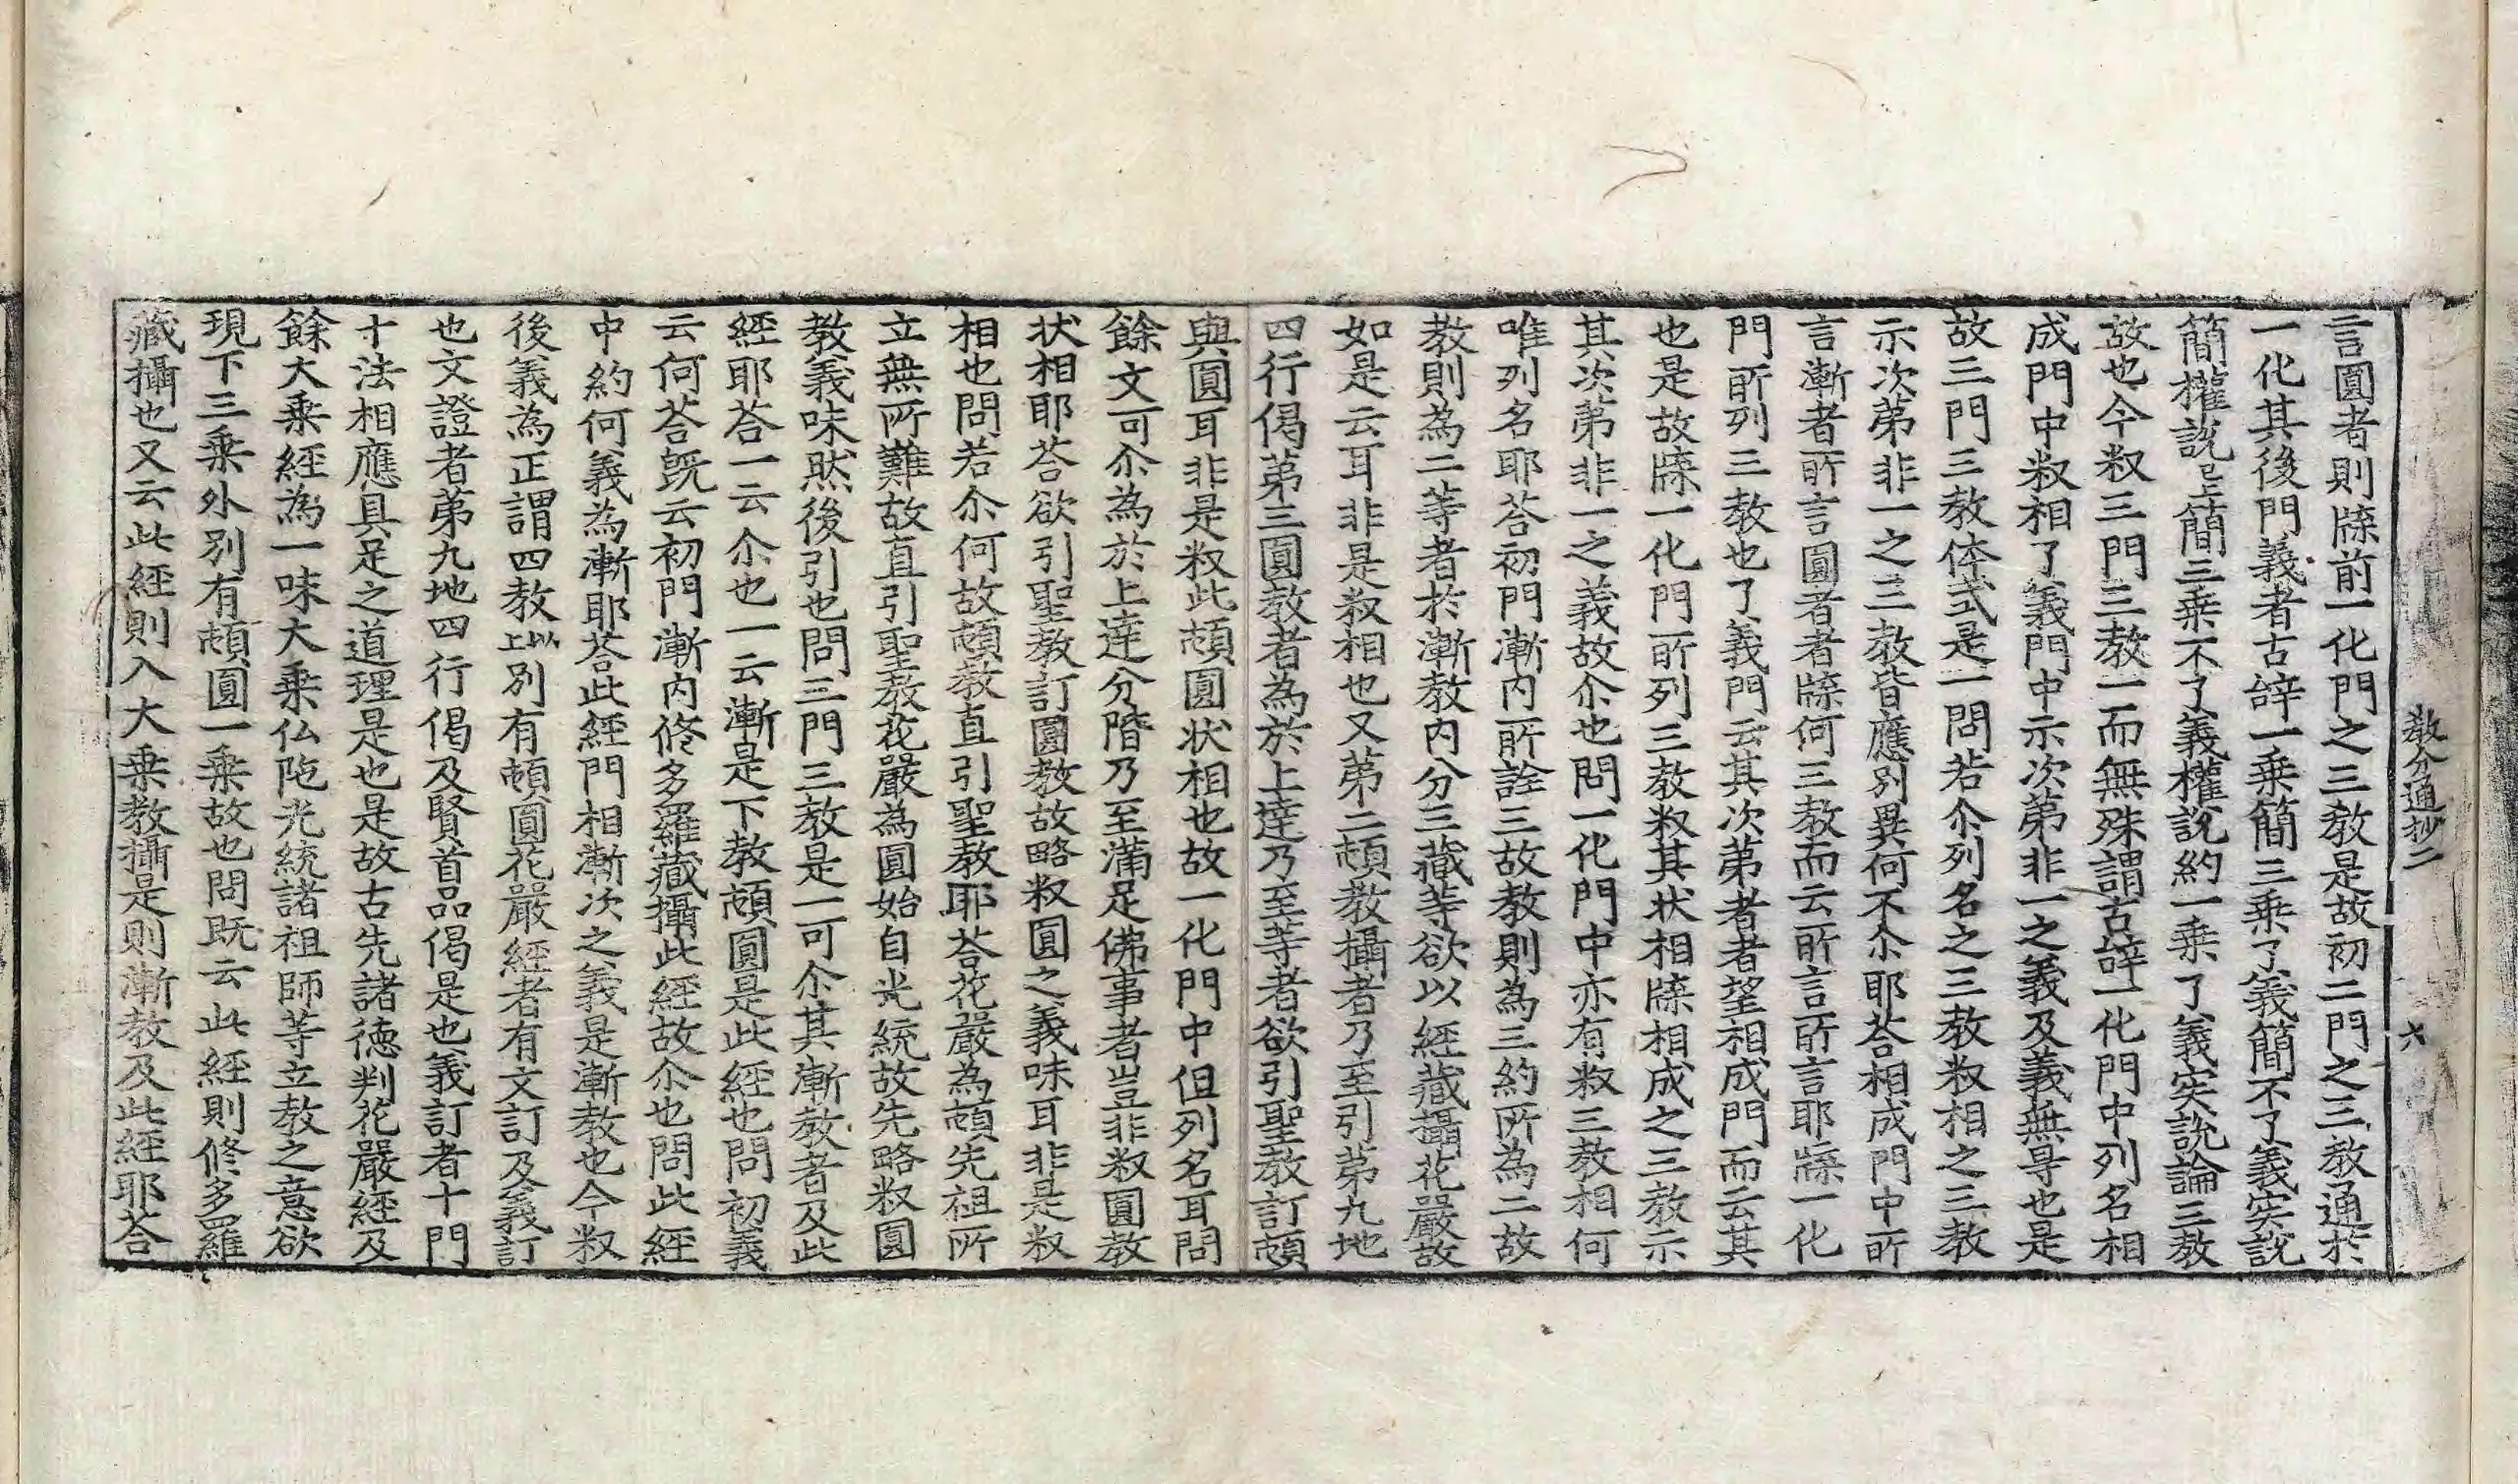 教分通抄二　六
言圓者則牒前一化門之三教是故初二門之三教通於
一化其後門義者古辞一乗簡三乗了義簡不了義宲說
簡權說已上簡三乗不了義權說約一乗了義宲說論三教
故也今㕘三門三教一而無殊謂古辞一化門中列名相
成門中㕘相了義門中示次第非一之義及義無㝵也是
故三門三教体式是一問若尒列名之三教㕘相之三教
示次第非一之三教皆應別異何不尒耶荅相成門中所
言漸者所言圓者者牒何三教而云所言所言耶牒一化
門所列三教也了義門云其次第者者望相成門而云其
也是故牒一化門所列三教㕘其状相牒相成之三教示
其次第非一之義故尒也問一化門中亦有㕘三教相何
唯列名耶荅初門漸内所詮三故教則為三約所為二故
教則為二等者於漸教内分三藏等欲以經藏攝花嚴故
如是云耳非是㕘相也又第二頓教攝者乃至引第九地
四行偈第三圓教者為於上逹乃至等者欲引聖教訂頓
與圓耳非是㕘此頓圓状相也故一化門中但列名耳問
餘文可尒為於上逹分階乃至滿足佛事者豈非㕘圓教
状相耶荅欲引聖教訂圓教故略㕘圓之義味耳非是㕘
相也問若尒何故頓教直引聖教耶荅花嚴為頓先祖所
立無所難故直引聖教花嚴為圓始自光統故先略㕘圓
教義味然後引也問三門三教是一可尒其漸教者及此
經耶荅一云尒也一云漸是下教頓圓是此經也問初義
云何荅旣云初門漸内修多羅藏攝此經故尒也問此經
中約何義為漸耶荅此經門相漸次之義是漸教也今㕘
後義為正謂四教以上別有頓圓花嚴經者有文訂及義訂
也文證者第九地四行偈及賢首品偈是也義訂者十門
十法相應具足之道理是也是故古先諸德判花嚴經及
餘大乗經為一味大乗仏陁光統諸祖師等立教之意欲
現下三乗外別有頓圓一乗故也問既云此經則修多羅
藏攝也又云此經則入大乗教攝是則漸教及此經耶荅